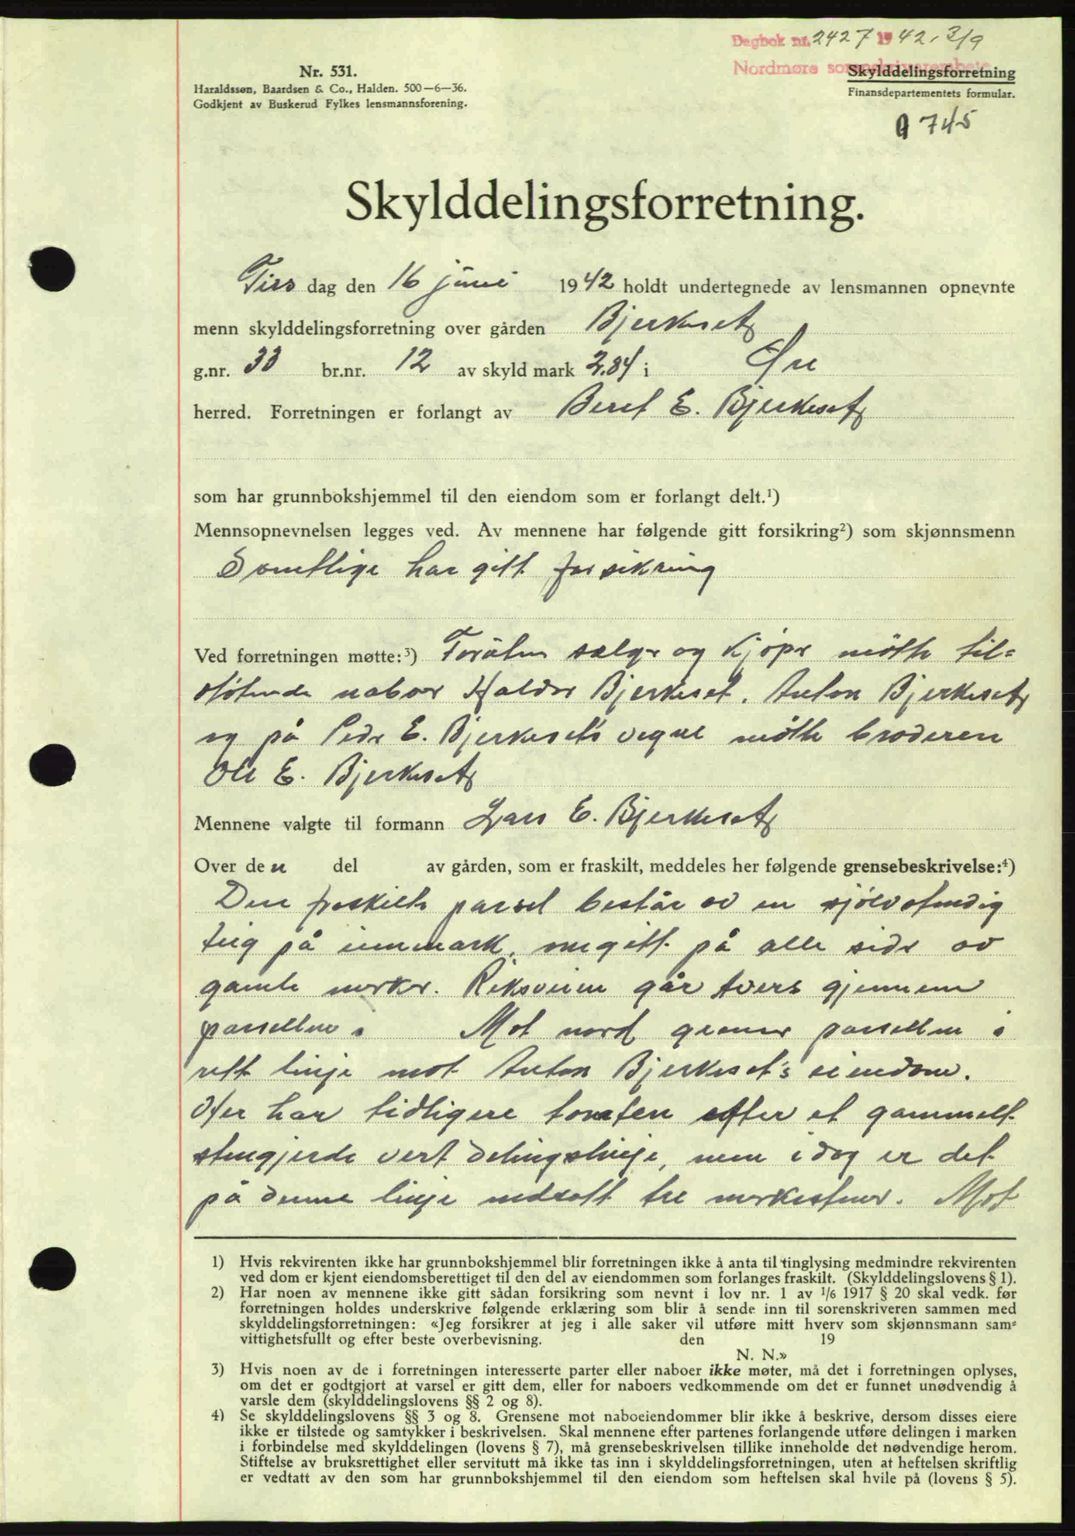 Dagbok nr. 2427 1942, 3/9
Nordmøre sorenskriverembete
Nr. 531.
Haraldssøn, Baardsen & Co., Halden. 500—6—36.
Godkjent av Buskerud Fylkes lensmannsforening.
Skylddelingsforretning
Finansdepartementets formular.
9745
Skylddelingsforretning.
Tirs dag den 16 juni 1942 holdt undertegnede av lensmannen opnevnte
menn skylddelingsforretning over gården Bjerkeset
g.nr. 33 br.nr. 12 av skyld mark 2.84 i Øre
herred. Forretningen er forlangt av Beret E. Bjerkeset
som har grunnbokshjemmel til den eiendom som er forlangt delt.¹)
Mennsopnevnelsen legges ved. Av mennene har følgende gitt forsikring²) som skjønnsmenn
Samtlige har gitt forsikring
Ved forretningen møtte:³) Foruten selger og kjøper møtte til=
støtende naboer Haldor Bjerkeset. Anton Bjerkeset
og på Peder E. Bjerkeset's vegne møtte broderen
Ole E. Bjerkeset
Mennene valgte til formann Lars E. Bjerkeset
Over den del av gården, som er fraskilt, meddeles her følgende grensebeskrivelse:⁴)
Den fraskilte parsel består av en sjølvstendig
teig på innmark, omgitt på alle sider av
gamle merker. Riksveien går tvers gjennem
parsellen. Mot nord grenser parsellen i
rett linje mot Anton Bjerkeset's eiendom.
Her har tidligere tomten efter et gammelt
stengjerde vert delingslinje, men idag er det
på denne linje nedsatt tre merkestener. Mot
1) Hvis rekvirenten ikke har grunnbokshjemmel blir forretningen ikke å anta til tinglysing medmindre rekvirenten
ved dom er kjent eiendomsberettiget til den del av eiendommen som forlanges fraskilt. (Skylddelingslovens § 1).
2) Har noen av mennene ikke gitt sådan forsikring som nevnt i lov nr. 1 av ¹/₆ 1917 § 20 skal vedk. før
forretningen holdes underskrive følgende erklæring som blir å sende inn til sorenskriveren sammen med
skylddelingsforretningen: «Jeg forsikrer at jeg i alle saker vil utføre mitt hverv som skjønnsmann sam=
vittighetsfullt og efter beste overbevisning. den 19
N. N.»
3) Hvis noen av de i forretningen interesserte parter eller naboer ikke møter, må det i forretningen oplyses,
om det er godtgjort at varsel er gitt dem, eller for naboers vedkommende om det er funnet unødvendig å
varsle dem (skylddelingslovens §§ 2 og 8).
4) Se skylddelingslovens §§ 3 og 8. Grensene mot naboeiendommer blir ikke å beskrive, dersom disses eiere
ikke er tilstede og samtykker i beskrivelsen. Skal mennene efter partenes forlangende utføre delingen i marken
i forbindelse med skylddelingen (lovens § 7), må grensebeskrivelsen tillike inneholde det nødvendige herom.
Stiftelse av bruksrettighet eller servitutt må ikke tas inn i skylddelingsforretningen, uten at heftelsen skriftlig
er vedtatt av den som har grunnbokshjemmel til den eiendom som heftelsen skal hvile på (lovens § 5).